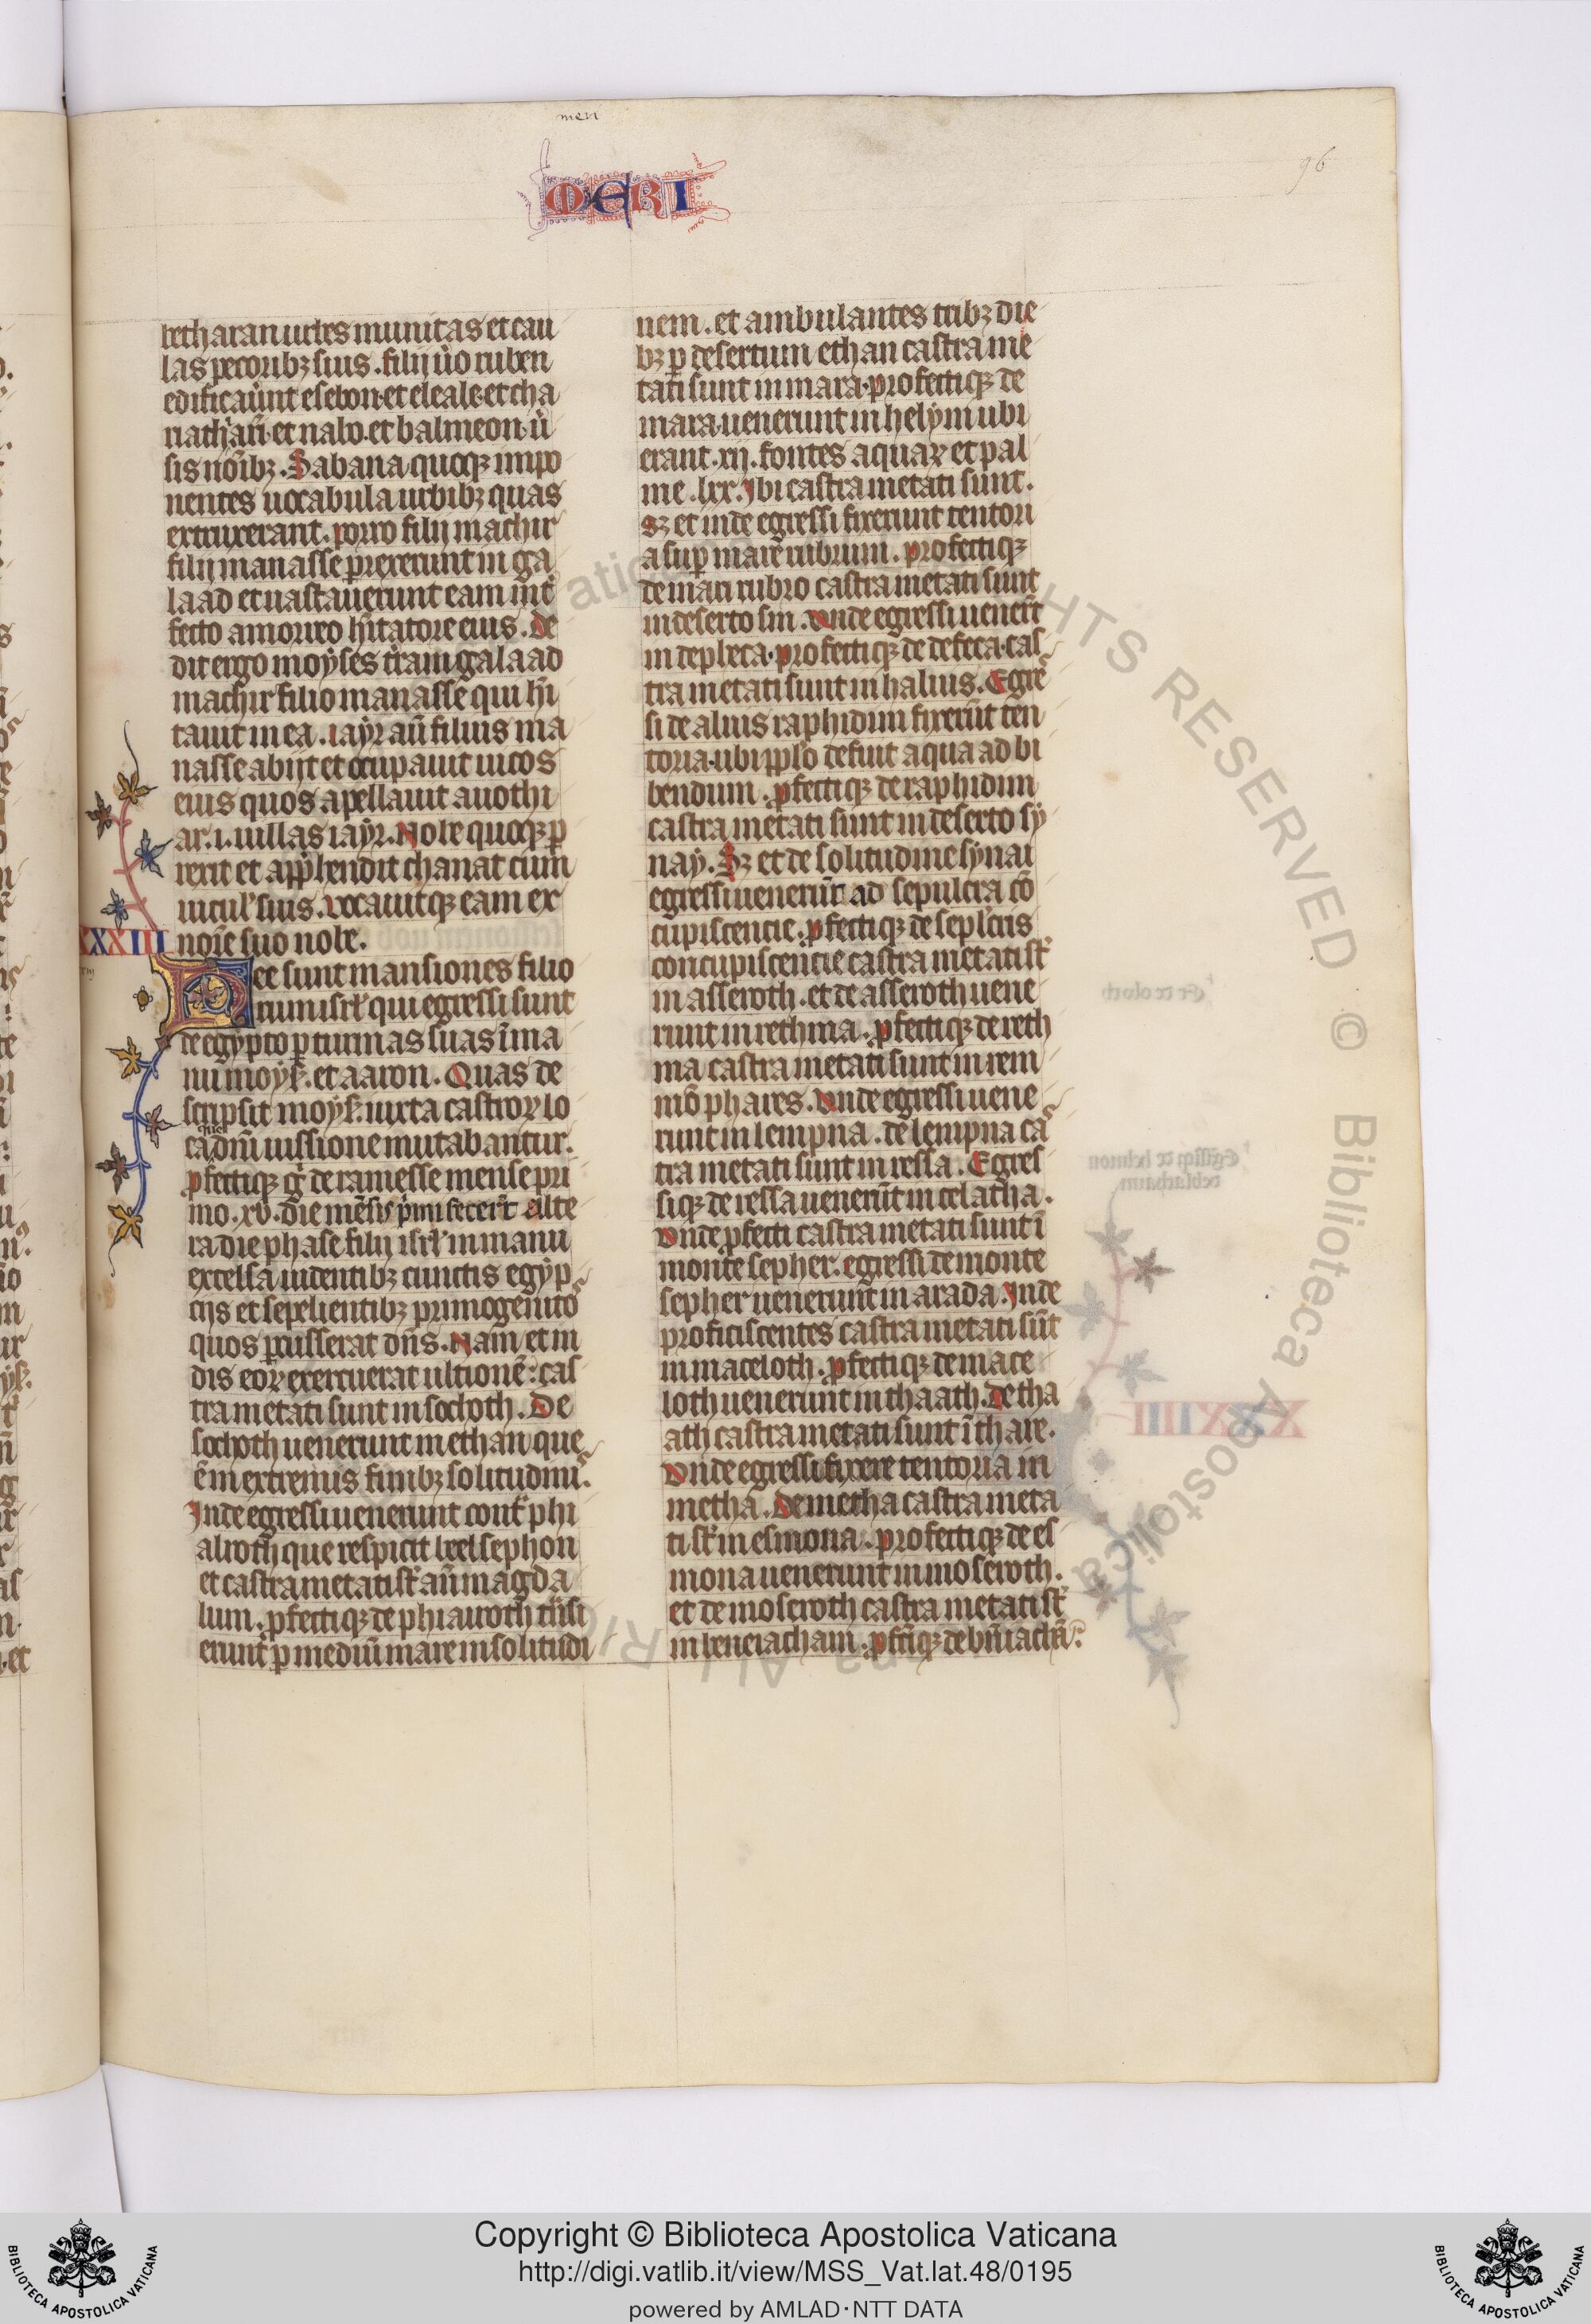 men
MERI
96
betharan urbes munitas et cau
las pecoribꝫ suis. filij ṽo ruben
edificaũnt esebon. et eleale. et cha
riathaȓi. et nabo. et balmeon. ũ
sis noĩbꝫ. Sabana quoqꝫ impo
nentes uocabula urbibꝫ quas
extruxerant. porro filij machir
filij manasse ꝑrexerunt in ga
laad et uastauerunt eam int̾
fecto amorreo hĩtatore eius. de
dit ergo moyses t̾ram galaad
machir filio manasse qui hĩ
tauit in ea. iayr aũ filius ma
nasse abijt et occupauit uicos
eius quos apellauit auothi
ar. i. uillas iayr. Nobe quoqꝫ ꝑ
rexit et app̃hendit chanat cum
uicul̾ suis. uocauitqꝫ eam ex
XXXIII noĩe suo nobe.
Hee sunt mansiones filio
rum isrl̾ qui egressi sunt
de egypto ꝑ turmas suas ĩ ma
nu moyẛ. et aaron. Quas de
scripsit moyẛ. iuxta castroꝝ lo
que
ca dñi iussione mutabantur.
ꝓfectiqꝫ g̾ de ramesse mense pri
mo. xv. die mẽsis p̾mi fecer̃t alte
ra die phase filij isrl̾ in manu
excelsa uidentibꝫ cunctis egyp
cijs et sepelientibꝫ primogenitos
quos ꝑcusserat dñs. Nam et in
dis eoꝝ exercuerat ultionẽ: cas
tra metati sunt in sochoth. De
sochoth uenerunt in ethan que
ẽ in extremis finibꝫ solitudinis.
Inde egressi uenerunt cont̾ phi
ahroth que respicit beelsephon
et castra metati st̾ añ magda
lum. ꝓfectiqꝫ de phiairoth t̾nsi
erunt ꝑ mediũ mare in solitudi
nem. et ambulantes tribꝫ die
bꝫ ꝑ desertum ethan castra me
tati sunt in mara. profectiqꝫ de
mara. uenerunt in helym ubi
erant .xij. fontes aquaꝝ et pal
me .lxx. Ibi castra metati sunt.
Sꝫ et inde egressi fixerunt tentori
a sup̲ mare rubrum. profectiqꝫ
de mari rubro castra metati sunt
in deserto sin. Vnde egressi uener̃t
in depheca. profectiqꝫ de defeca. cas
tra metati sunt in halius. Egres
si de aluis raphidim fixerũt ten
toria. ubi pp̾lo defuit aqua ad bi
bendum. ꝓfectiqꝫ de raphidim
castra metati sunt in deserto sy
nay. Sꝫ et de solitudine synai
egressi uenerũt ad sepulcra cõ
cupiscencie. ꝓfectiqꝫ de sepl̾cris
concupiscencie castra metati st̾
in asseroth. et de asseroth uene
runt in rethma. ꝓfectiqꝫ de reth
ma castra metati sunt in rem
mõ phares. Vnde egressi uene
runt in lempna. de lempna cas
tra metati sunt in ressa. Egres
siqꝫ de ressa uenerũt in celatha.
Vnde ꝓfecti castra metati sunt ĩ
monte sepher. egressi de monte
sepher uenerunt in arada. Inde
proficiscentes castra metati sũt
in maceloth. ꝓfectiqꝫ de mace
loth uenerunt in thaath. de tha
ath castra metati sunt ĩ thare.
Vnde egressi fixere tentoria in
metha. De metha castra meta
ti st̾ in esmona. profectiqꝫ de es
mona uenerunt in moseroth.
et de moseroth castra metati st̾
in beneiacham. ꝓfctĩqꝫ de bñiachã.
Copyright © Biblioteca Apostolica Vaticana
http://digi.vatlib.it/view/MSS_Vat.lat.48/0195
powered by AMLAD·NTT DATA
BIBLIOTECA APOSTOLICA VATICANA
BIBLIOTECA APOSTOLICA VATICANA